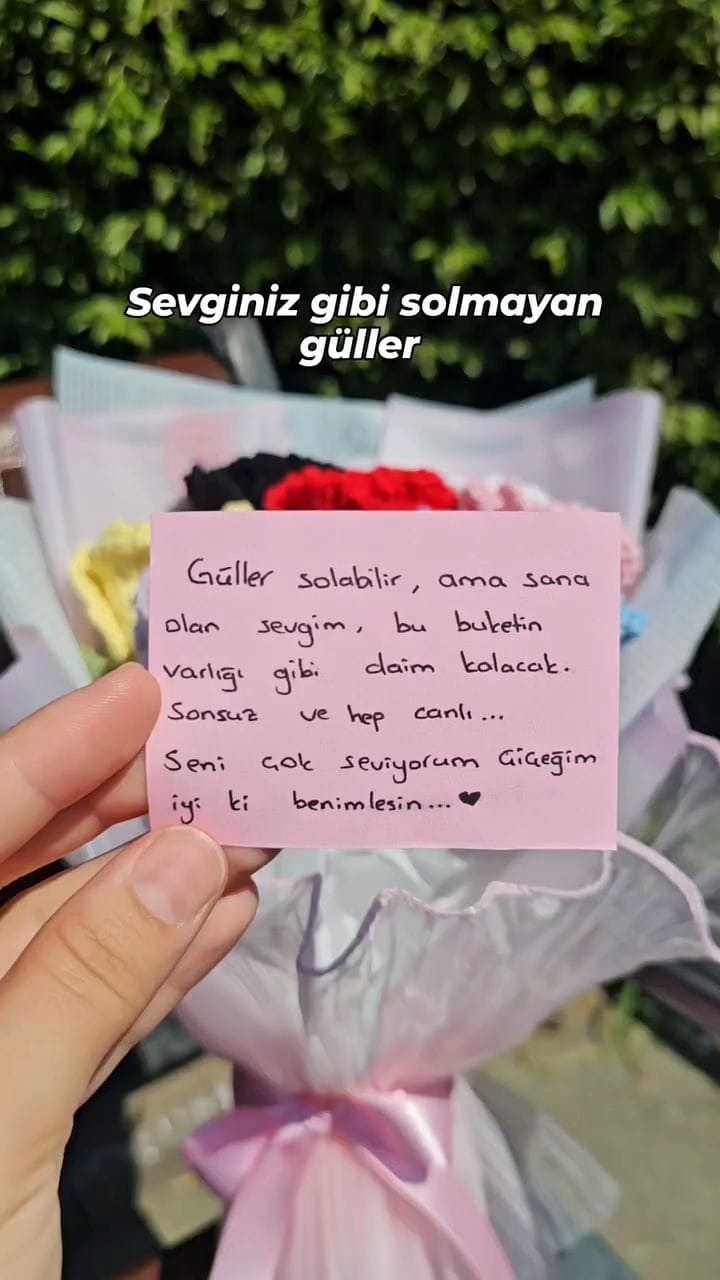 Sevginiz gibi solmayan
güller
Güller solabilir, ama sana
olan sevgim, bu buketin
varlığı gibi daim kalacak.
Sonsuz ve hep canlı...
Seni çok seviyorum Çiçeğim
iyi ki benimlesin... ♥